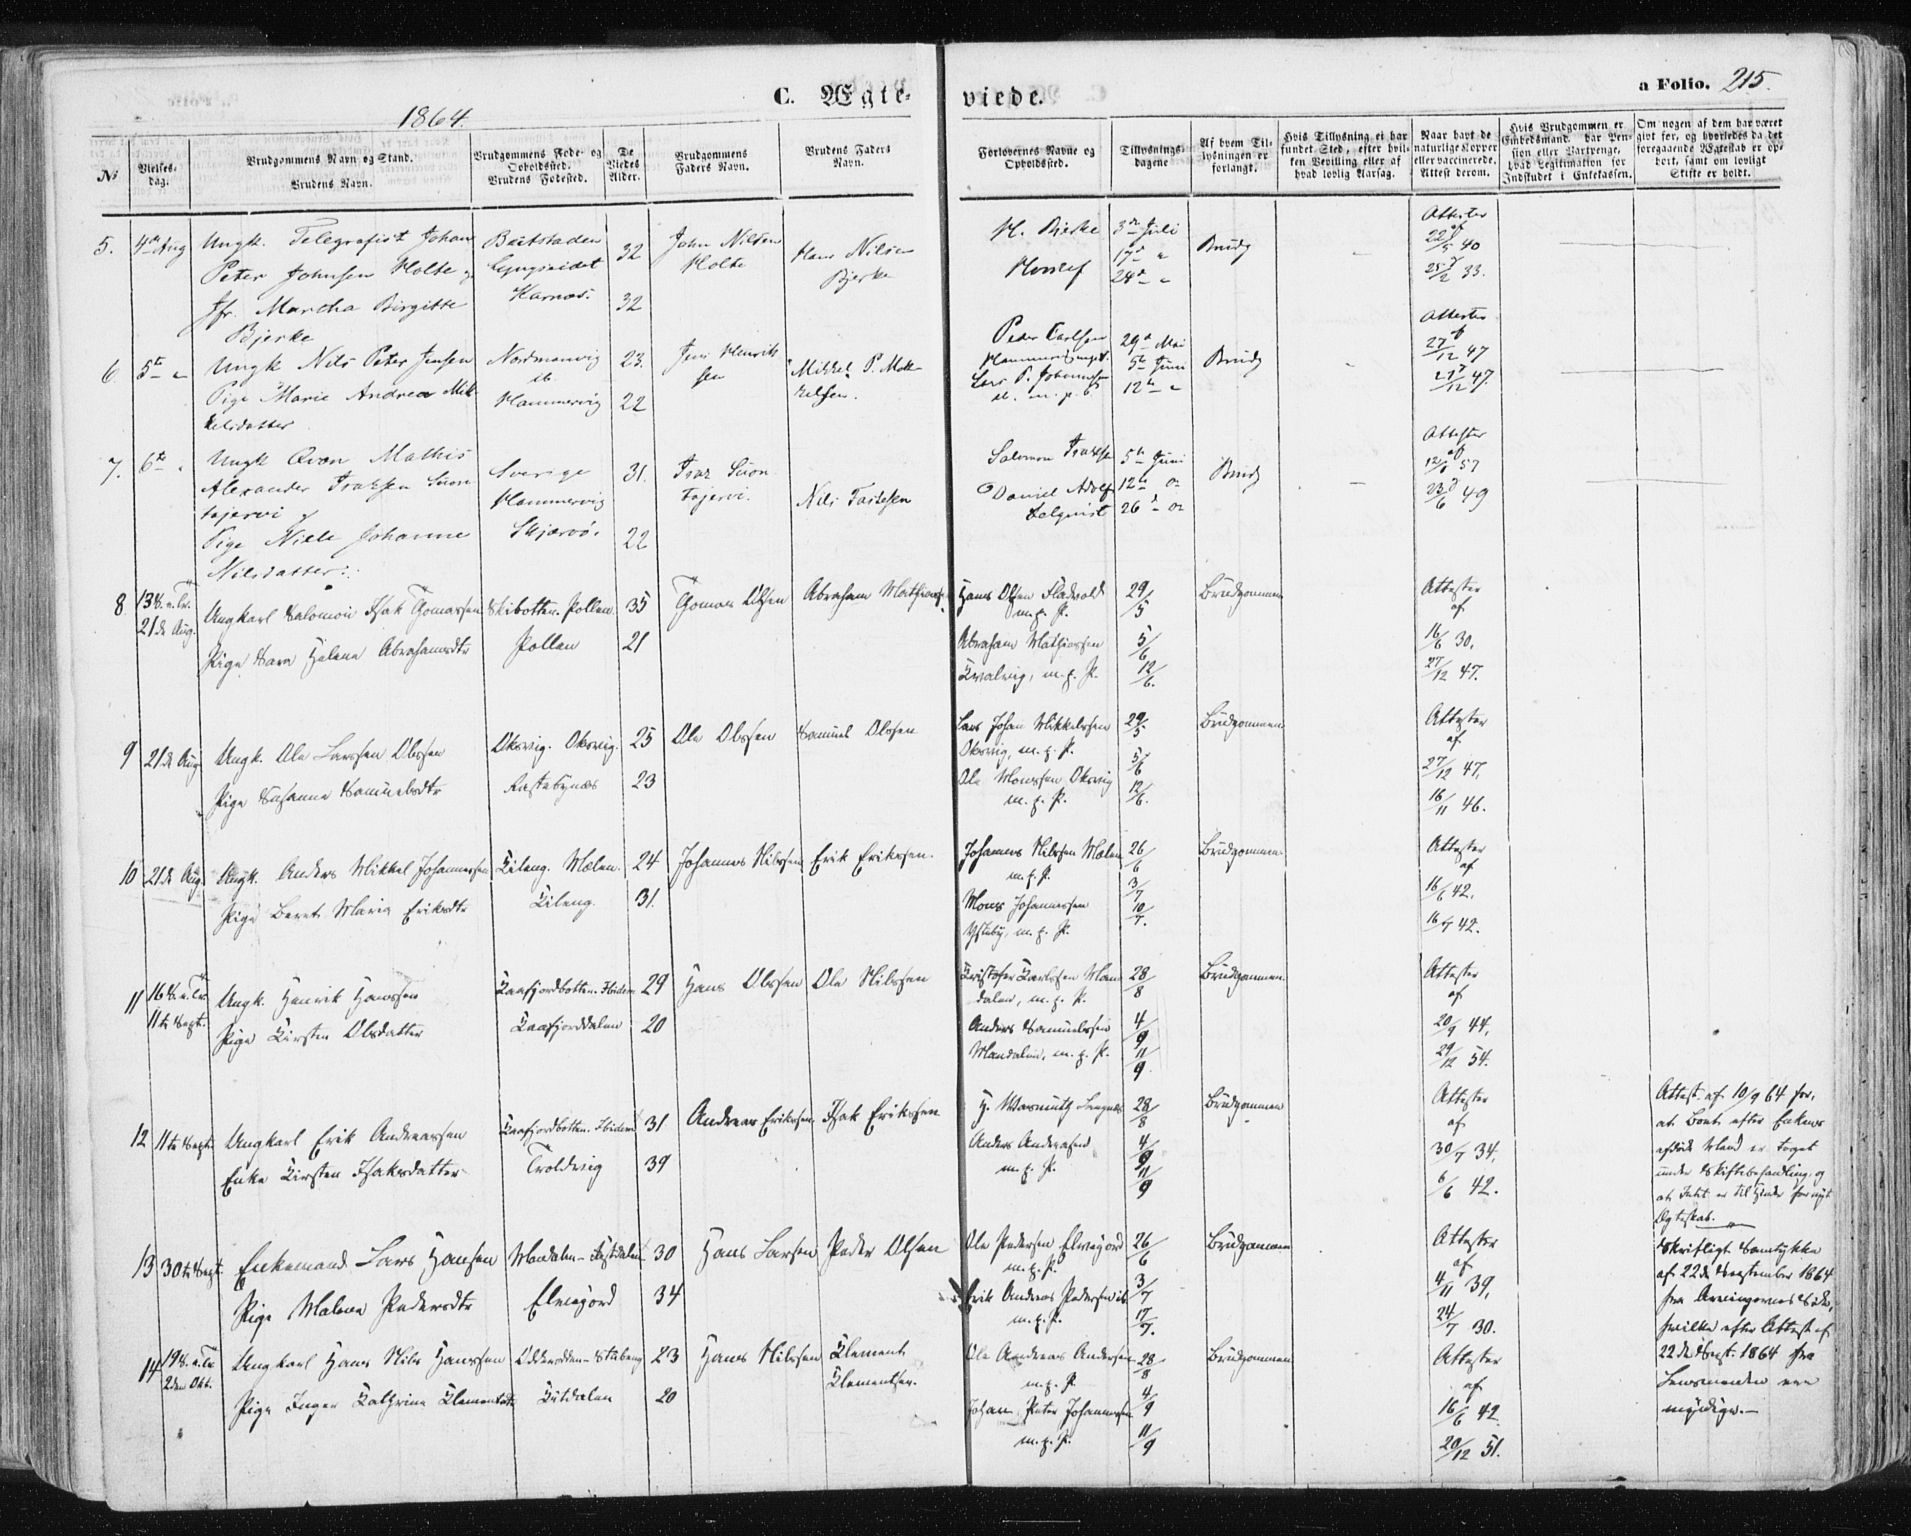 C. Ægte-
viede.
a Folio. 215.
1864.
No
Vielses-
dag.
Brudgommens Navn og Stand.
Brudens Navn.
Brudgommens Føde- og
Opholdssted.
Brudens Fødested.
De
Viedes
Alder.
Brudgommens
Faders Navn.
Brudens Faders
Navn.
Forlovernes Navne og
Opholdssted.
Tillysnings-
dagene
Af hvem Til-
lysningen er
forlangt.
Hvis Tillysning ei har
fundet Sted, efter hvil-
ken Bevilling eller af
hvad lovlig Aarsag.
Naar havt de
naturlige Kopper
eller vaccinerede.
Attest derom.
Hvis Brudgommen er
Embedsmand, har Pen-
sion eller Vartpenge,
hvad Legitimation for
Indskudet i Enkekassen.
Om nogen af dem har været
gift før, og hvorledes da det
foregaaende Ægteskab er op-
hørt, samt om lovligt
Skifte er holdt.
5. 4de Aug Ungk. Telegrafist Johan
Peter Johnsen Holte og
Jfr. Martha Birgitte
Bjerke
Lyngseidet
Karnæs.
32
32
John Nilsen
Holte
Hans Nilsen
Bjerke
H. Bjerke
3de Juli
17de "
24de "
Brudg
Attester
af
22/5 40
25/2 33.
6 5te " Ungk Nils Peter Jensen
Pige Marie Andrea Mik-
kelsdatter
Nordmanvig
Hammervig
23.
22
Jens Henrik
sen
Mikkel P. Mik-
kelsen.
Peder Carlsen
Lars P. Johannesen
29de Mai
5te Juni
12te "
Brudg
Attester
af
27/12 47
27/12 47.
7. 6te " Ungk Qvæn Mathis
Alexander Isaksen Suon-
tajervi og
Pige Niele Johanne
Nilsdatter.
Sverige
Hammervig
Skjærvö.
31.
22
Isak Suon
tajervi.
Nils
Salomon
Daniel Adolf
5te Juni
12te
26de
Brudg
Attester
af
57
23/6 49
8 138. n. Tr.
21de Aug. Ungkarl Salomon Isak Thomassen
Pige Sara Helene Abrahamsdtr
Skibotten. Pollen.
Pollen
35
21
Thomas Olsen
Abraham Mathiassen
Hans Olsen
m. p. P.
Abraham Mathiassen
Kvalvig, m. p. P.
29/5
5/6
12/6.
Brudgommen
Attester
af
16/6 30.
27/12 47.
9 21de Aug Ungk. Ole Larssen Olssen
Pige Susanna Samuelsdtr
Oksvig. Oksvig.
Rastabynæs
25
23
Ole Olssen
Samuel Olssen
Lars Johan Mikkelssen
Oksvig, m. p. P.
Ole Monssen Oksvig
m. p. P.
29/5
5/6
12/6.
Brudgommen
Attester
af
27/12 47.
16/11 46.
10 21de Aug. Ungk. Anders Mikkel Johannessen
Pige Beret Maria Eriksdtr
Kileng. Mælen.
Kileng.
24
31.
Johannes Nilssen
Erik Erikssen.
Johannes Nilssen Mælen
m. p. P.
Mons Johannessen
Ytteby, m. p. P.
26/6
3/7
10/7.
Brudgommen
Attester
af
16/6 42.
16/7 42.
11 16 S. n. Tr.
11te Sept. Ungk. Henrik Hanssen
Pige Kirsten Olsdatter
Kaafjordbotten. Ibidem
Kaafjorddalen
29
20
Hans Olssen
Ole Nilssen
Kristofer Karlssen Man-
dalen, m. p. P.
Anders Samuelssen
Mandalen, m. p. P.
28/8
4/9
11/9
Brudgommen
Attester
af
20/9 44.
29/12 54.
12 11te Sept. Ungkarl Erik Andreassen
Enke Kirsten Isaksdatter
Kaafjordbotten. Ibidem
Troldvig
31
39
Andreas Erikssen.
Isak Erikssen
H. Warmuth Lengnæs
Anders Andreassen
m. p. P.
28/8
4/9
11/9
Brudgommen
Attester
af
30/7 34.
6/6 42.
Attest af 10/9 64 for,
at Boet efter Enkens
afdøde Mand er taget
under Skiftebehandling, og
at Intet er til Hinder for nyt
Ægteskab.
13 30te Sept. Enkemand Lars Hansen
Pige Malene Pedersdtr
Elvegord
30
34
Hans Larsen
Peder Olsen
Ole Pedersen Elvegord
m. p. P.
Erik Andreas Pedersen ib.
m. p. P.
26/6
3/7
17/7.
Brudgommen
Attester
af
4/11 39.
24/7 30.
Skriftligt Samtykke
af 22de September 1864
fra Arvingernes Side,
hvilke efter Attest af
22de Sept. 1864 fra
Lensmanden ere
myndige.
14 19 S. n. Tr
2den Okt. Ungkarl Hans Nils Hanssen
Pige Inger Kathrine Klementsdtr
Kitdalen
23
20
Hans Nilssen
Klement
Klementsen.
Ole Andreas Andersen
m. p. P.
Johan Peter Johannessen
m. p. P.
28/8
4/9
11/9
Brudgommen
Attester
af
16/6 42
20/12 51.